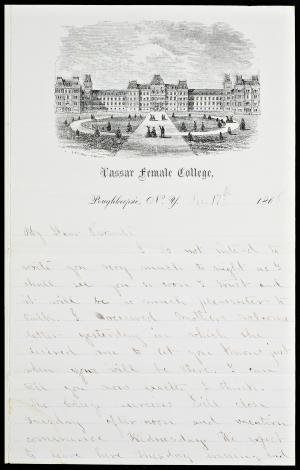 Vassar Female College,
Poughkeepsie, N.Y. Dec 17th 186
My Dear Parents
I do not intend to
write you very much to night as I
shall see you so soon I trust and
it will be so much pleasanter to
talk. I received Mothers welcome
letter yesterday in which she
desired me to let you know just
when you will be there. I can
tell you now exactly I think.
The exercises will close
Tuesday afternoon and vacation
commence Wednesday. We expect
to leave here Tuesday evening and